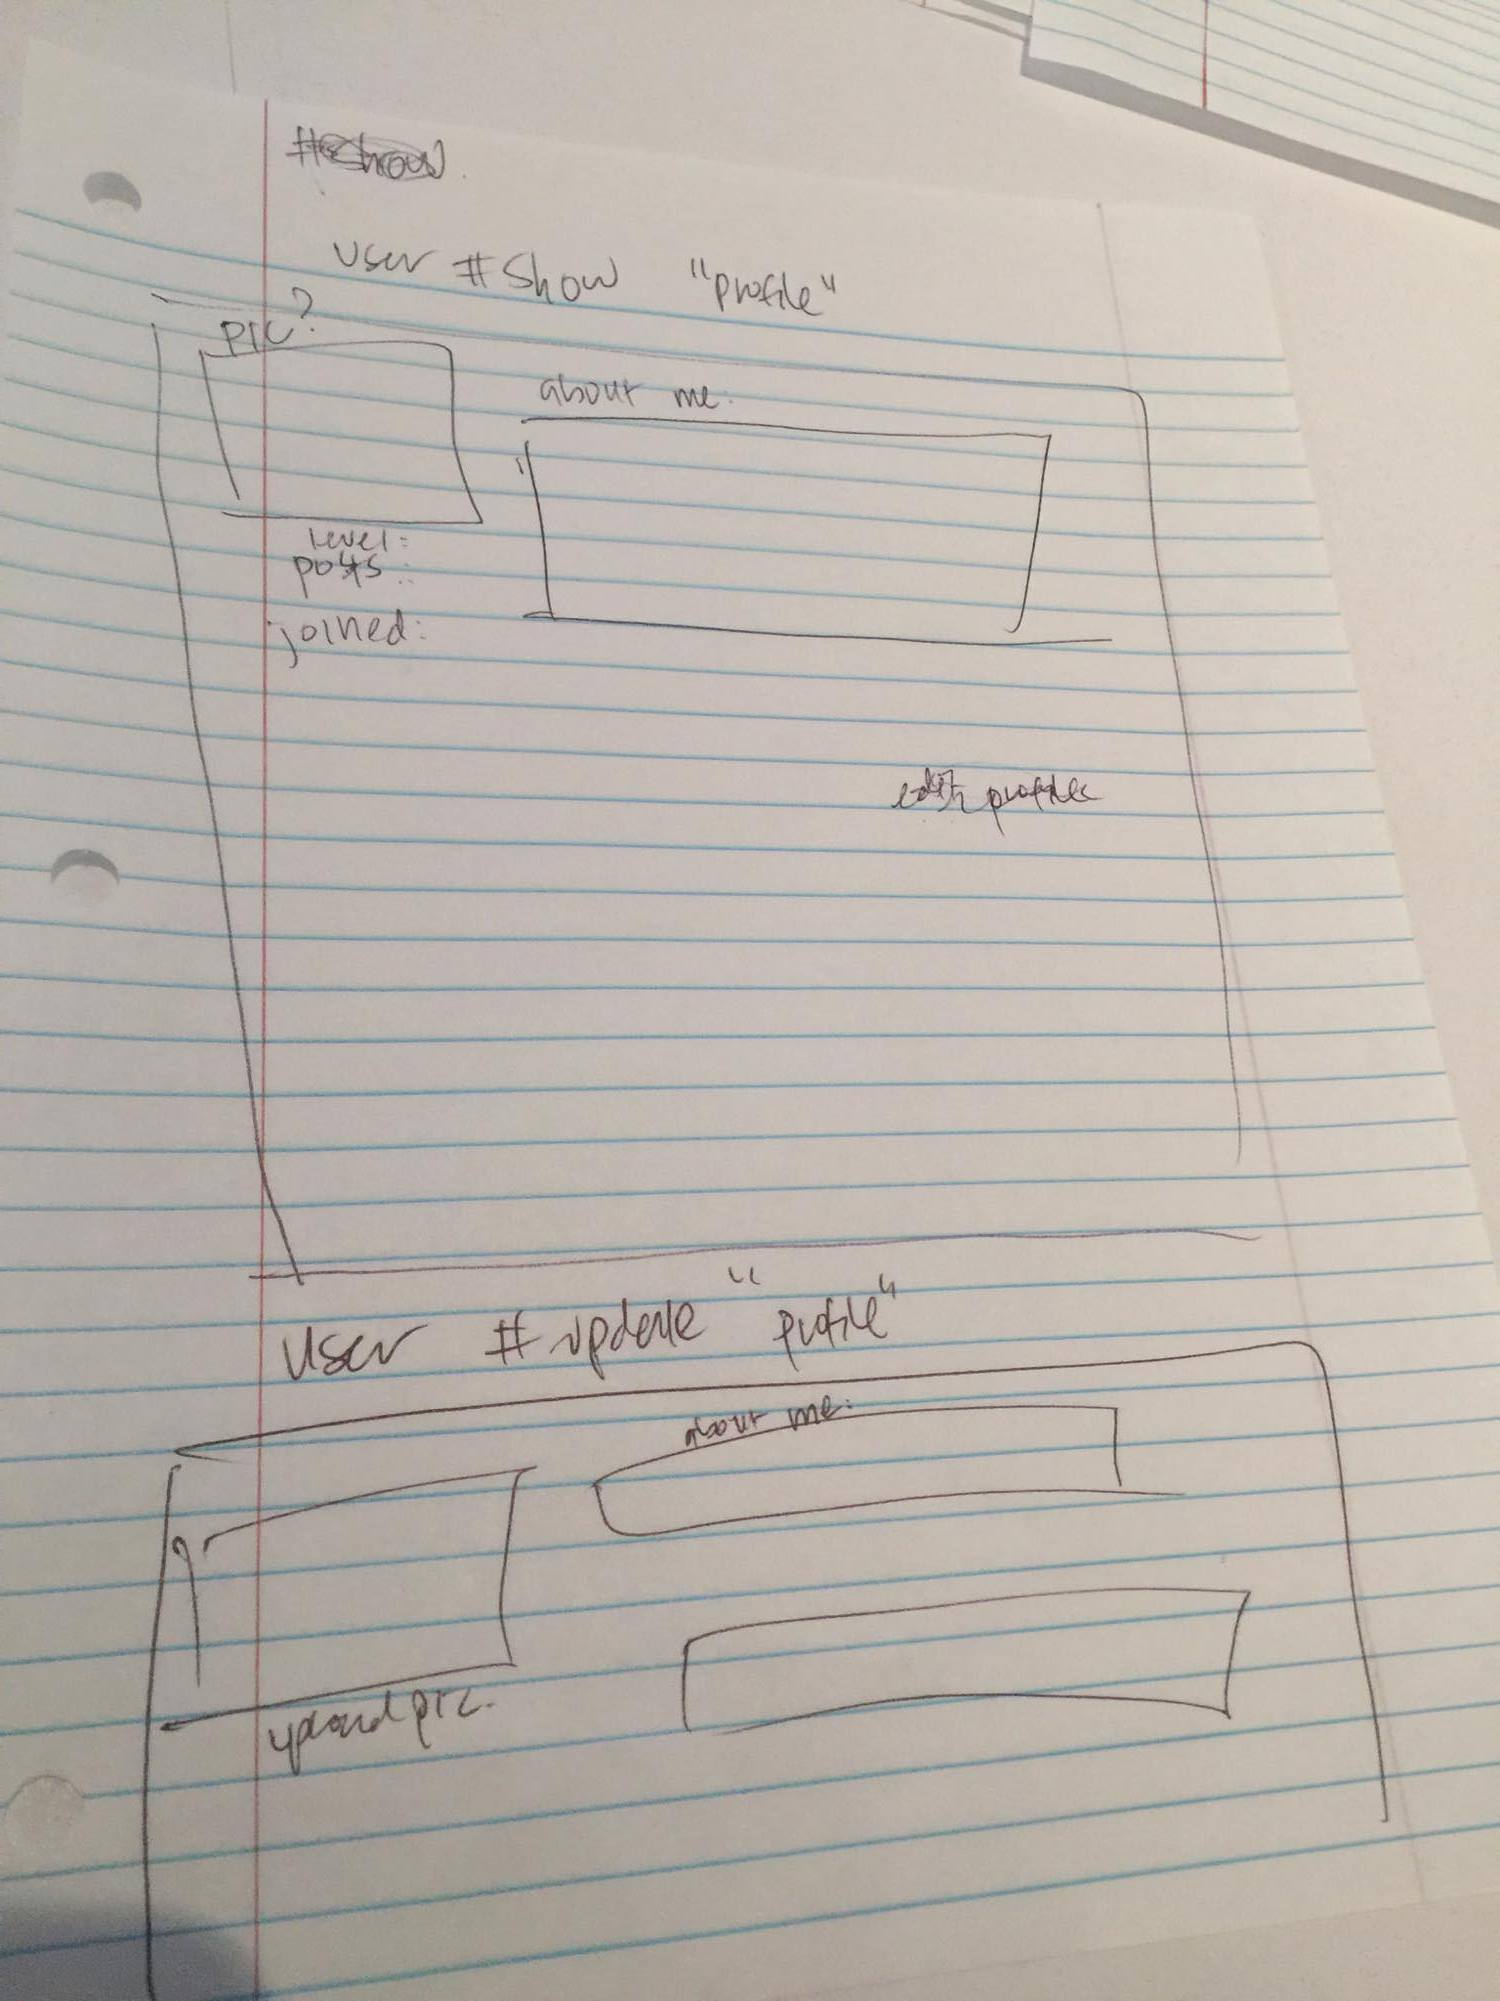 #Show
User #Show "profile"
PIC?
about me.
Level:
posts:
joined:
edit profile
User #update "profile"
about me:
upload pic.